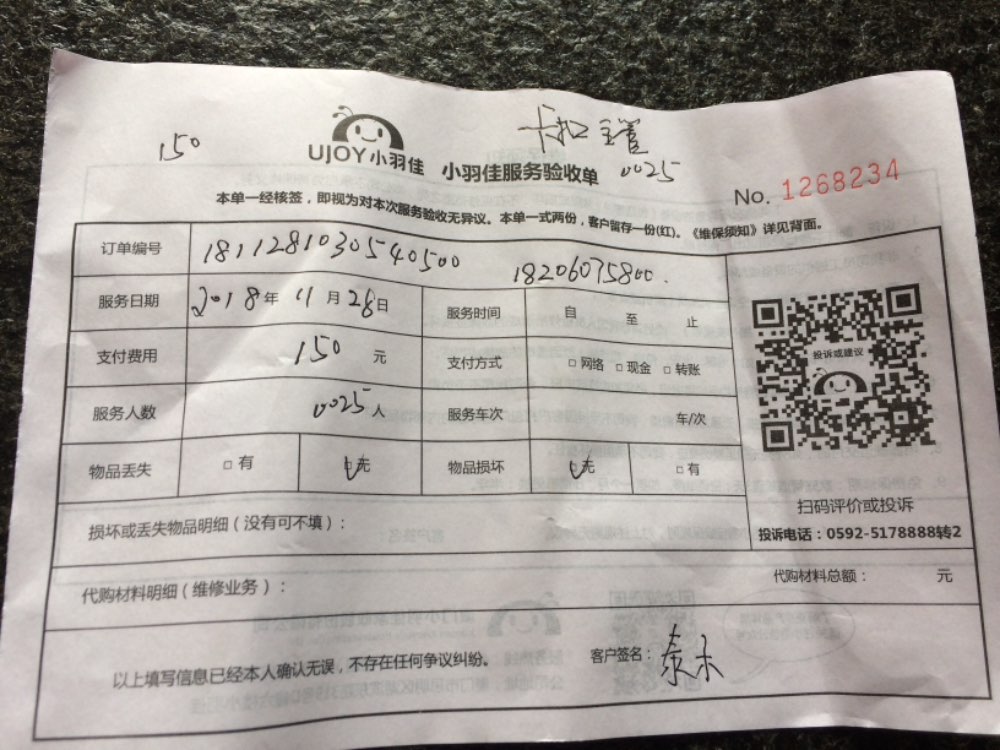 150
卡扣
0025
UJOY小羽佳 小羽佳服务验收单
No. 1268234
本单一经核签，即视为对本次服务验收无异议。本单一式两份，客户留存一份(红)。《维保须知》详见背面。
订单编号 18112810305540500 18206075800.
服务日期 2018年 11月 28日 服务时间 自 至 止
支付费用 150 元 支付方式 □ 网络 □ 现金 □ 转账
服务人数 0025人 服务车次 车/次
物品丢失 □ 有 □ 无 物品损坏 □ 无 □ 有
投诉或建议
扫码评价或投诉
投诉电话：0592-5178888转2
损坏或丢失物品明细（没有可不填）：
代购材料明细（维修业务）： 代购材料总额： 元
以上填写信息已经本人确认无误，不存在任何争议纠纷。 客户签名：